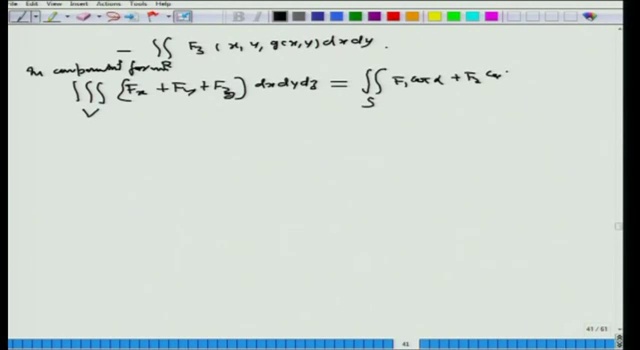 File Edit View Insert Actions Tools Help
− ∬_R F₃ (x, y, g(x, y)) dx dy.
In component form
∭_V {F_x + F_y + F_z} dx dy dz = ∬_S F₁ cos α + F₂ cos
41 / 61
41